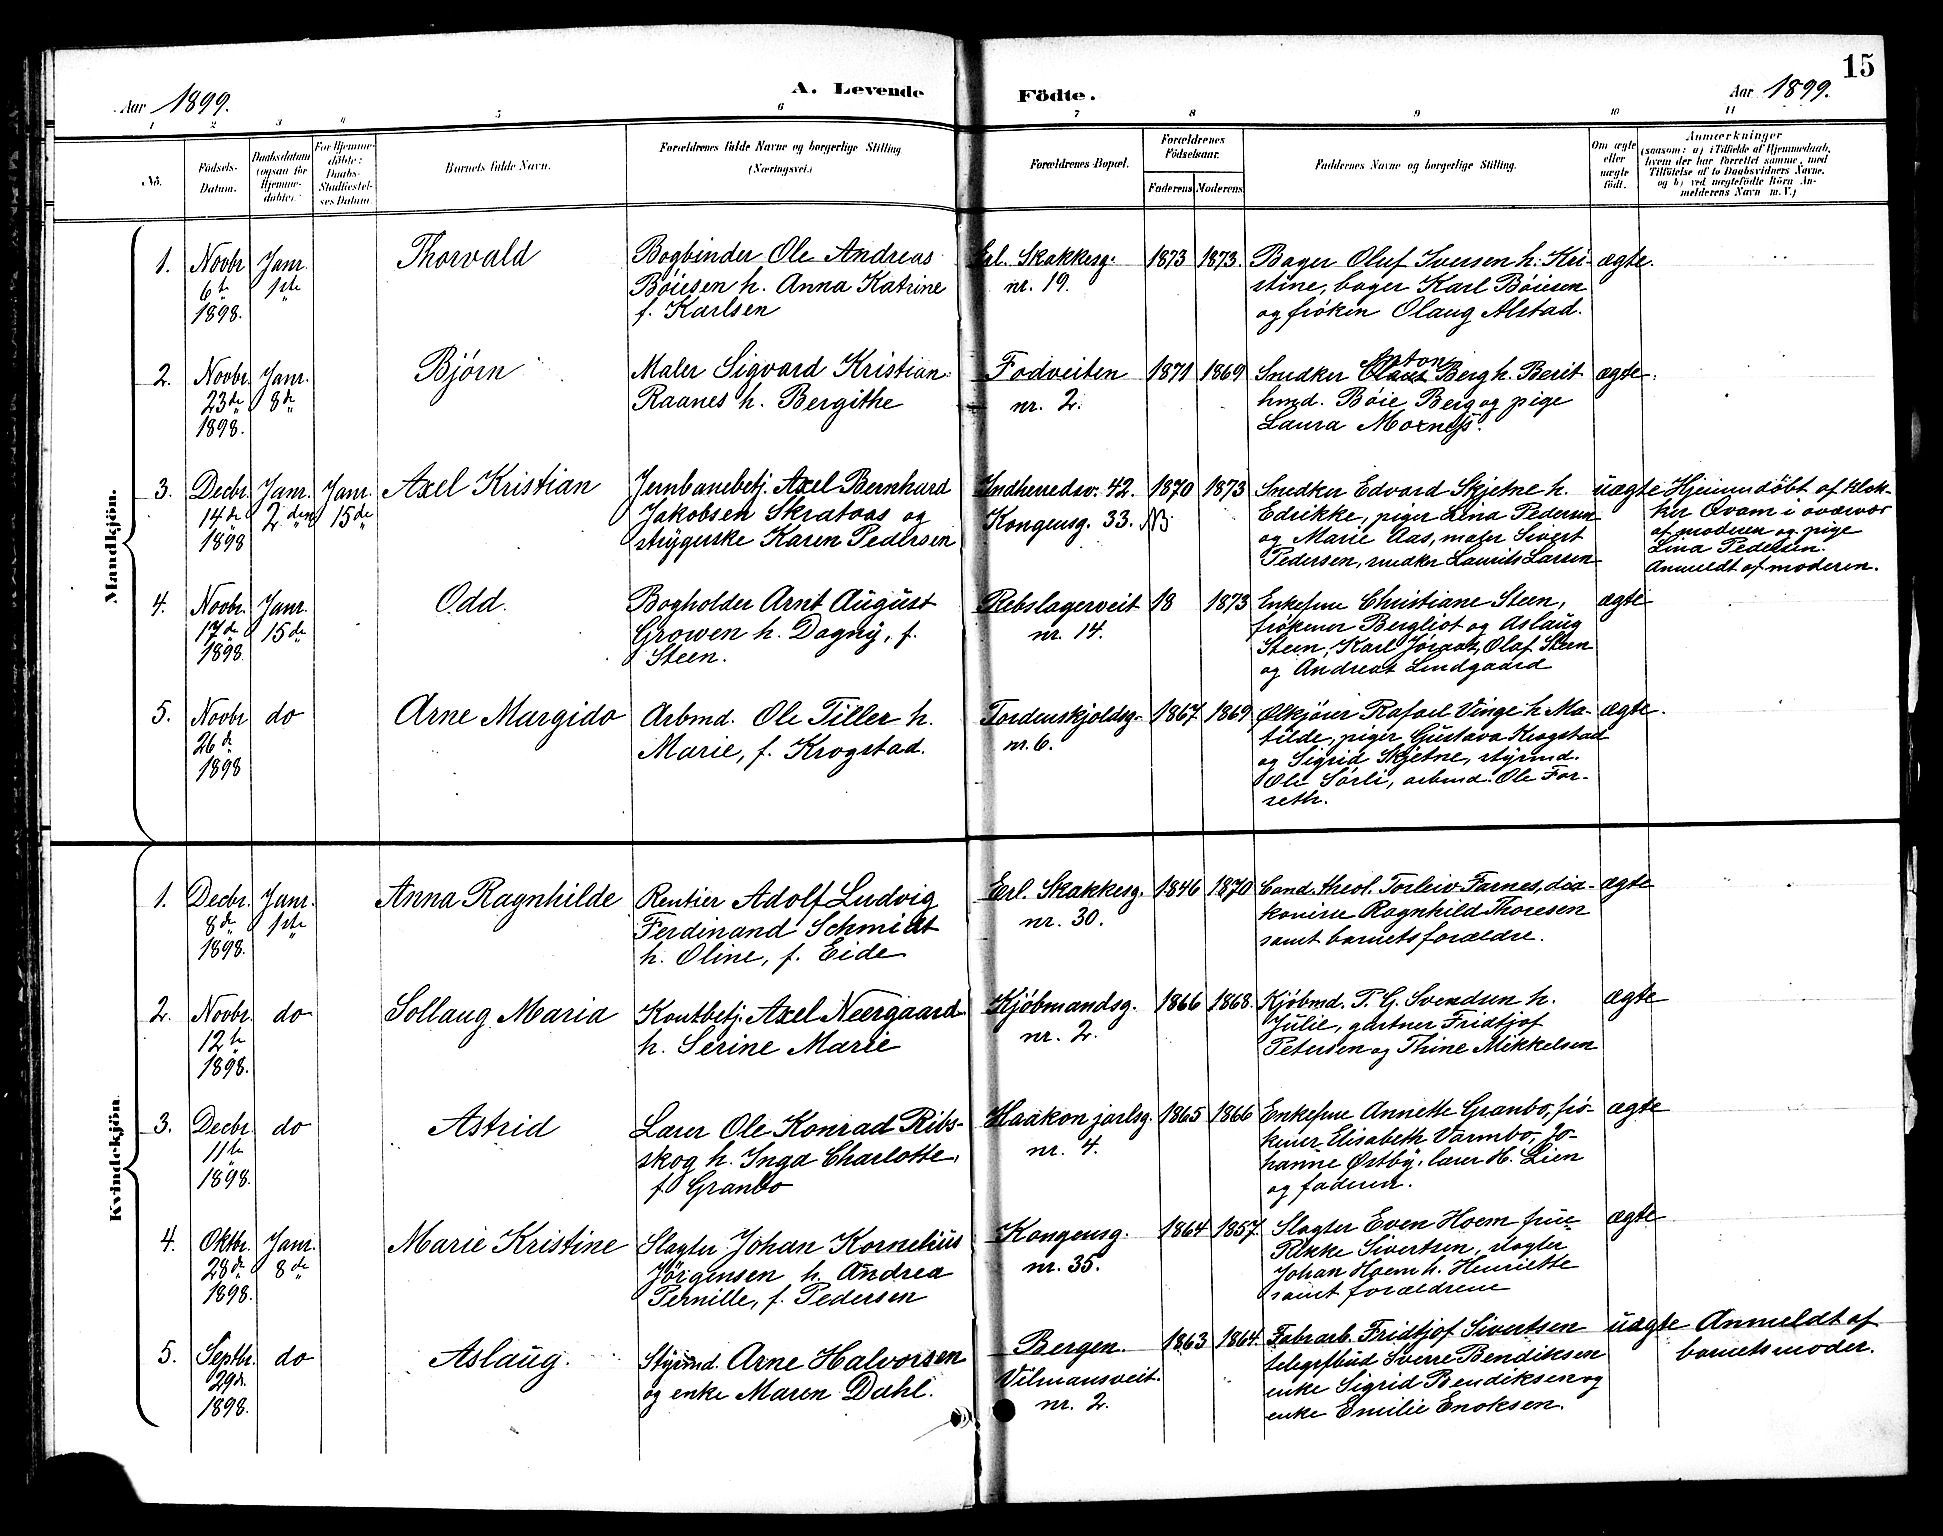 15
Aar 1899.
A. Levende Födte.
Aar 1899.
1 2 3 4 5 6 7 8 9 10 11
No.
Födsels-
Datum.
Daabsdatum
(ogsaa for
Hjemme-
döbte).
For Hjemme-
döbte:
Daabs-
Stadfæstel-
ses Datum.
Barnets fulde Navn.
Forældrenes fulde Navne og borgerlige Stilling
(Næringsvei.)
Forældrenes Bopæl.
Forældrenes
Födselsaar.
Faderens Moderens.
Faddernes Navne og borgerlige Stilling.
Om ægte
eller
uægte
födt.
Anmærkninger
(saasom: a) i Tilfælde af Hjemmedaab,
hvem der har forrettet samme, med
Tilföielse af to Daabsvidners Navne,
og b) ved uægtefödte Börn An-
melderens Navn m. V.)
Mandkjön.
1.
Novbr
6te
1898.
Janr.
1ste
Thorvald
Bogbinder Ole Andreas
Böiesen h. Anna Katrine
f. Karlsen
Erl. Skakkesg.
nr. 19.
1873
1873.
Bager Oluf Iversen h. Kri-
stine, bager Karl Böiesen
og fröken Olaug Alstad.
ægte.
2.
Novbr.
23de
1898.
Janr.
8de
Bjørn
Maler Sigvard Kristian
Raanes h. Bergithe
Fodveiten
nr. 2.
1871
1869
Anton
Snedker Berg h. Berit
hmd. Boie Berg og pige
Laura
ægte.
3.
Decbr.
14de
1898
Janr.
2den
Janr.
15de
Axel Kristian
Jernbanebetj. Axel Bernhard
Jakobsen Skrataas og
strygerske Karen Pedersen
Indherredsv. 42.
Kongensg. 33.
1870
1873
Snedker Edvard Skjetne h.
Edrikke, piger Lina Pedersen
og Marie Aas, maler Sivert
Pedersen, snedker Laurits Larsen
uægte
Hjemmedöbt af klok-
ker Qvam i overvær
af moderen og pige
Lina Pedersen.
Anmeldt af moderen.
4.
Novbr.
17de
1898
Janr.
15de
Odd.
Bogholder Arnt August
Growen h. Dagny, f.
Steen.
Rebslagerveit
nr. 14.
18
1873
Enkefrue Christiane Steen,
frökener Bergliot og Aslaug
Steen, Karl Olaf Steen
og Andreas Lindgaard
ægte
5.
Novbr
26de
1898
do
Arne Margido
Arbmd. Ole Tiller h.
Marie, f. Krogstad.
Tordenskjoldsg.
nr. 6.
1867
1869
Ølkjörer Rafael Vinge h. Ma-
tilde, piger Gustava Krogstad
og Sigrid Skjetne, styrmd.
Ole Sörli, arbmd. Ole For-
seth.
ægte.
Kvindekjön.
1.
Decbr.
8de
1898.
Janr.
1ste
Anna Ragnhilde
Rentier Adolf Ludvig
Ferdinand Schmidt
h. Oline, f. Eide
Erl. Skakkesg.
nr. 30.
1846
1870
Cand. theol. Torleiv Farnes, dia-
konisse Ragnhild Thoresen
samt barnets forældre.
ægte
2.
Novbr.
12te
1898.
do
Sollaug Maria
Kontbetj. Axel Neergaard
h. Serine Marie
Kjöbmandsg.
nr. 2.
1866
1868.
Kjöbmd. P. G. Svendsen h.
Julie, gartner Fridtjof
Petersen og Thine Mikkelsen
ægte
3.
Decbr.
11te
1898.
do
Astrid
Lærer Ole Konrad Ribs-
skog h. Inga Charlotte,
f. Granbo
Haakon jarlsg.
nr. 4.
1865
1866
Enkefrue Annette Granbo, frö-
kener Elisabeth Varmbo, Jo-
hanne Østby, lærer H. Lien
og faderen.
ægte
4.
Oktbr.
28de
1898.
Janr.
8de
Marie Kristine
Slagter Johan Kornelius
Jörgensen h. Andrea
Pernille, f. Pedersen
Kongensg.
nr. 35.
1864
1857.
Slagter Even Hoem frue
Rikke Sivertsen, slagter
Johan Hoem h. Henriette
samt forældrene
ægte
5.
Septbr.
29de
1898.
do
Aslaug.
Styrmd. Arne Halvorsen
og enke Maren Dahl.
Bergen.
Vilmansveit.
nr. 2.
1863
1864.
Fabrarb. Fridtjof Sivertsen
telegrfbud Sverre Bendiksen
enke Sigrid Bendiksen og
enke Emilie Enoksen.
uægte
Anmeldt af
barnets moder.